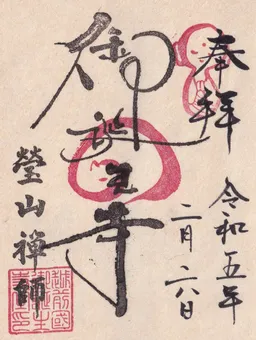 奉拝
令和五年
二月二六日
御誕生寺
瑩山禪師
越前國
御誕生